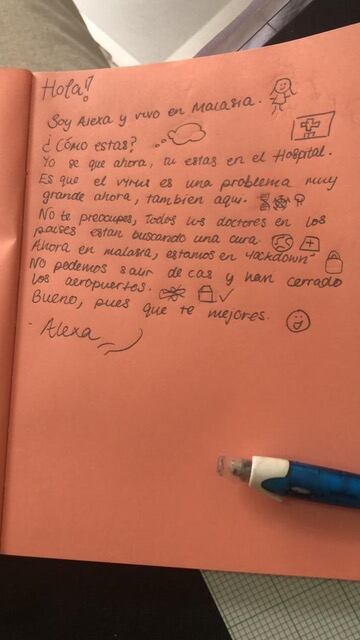 Hola!!
Soy Alexa y vivo en Malasia.
¿Cómo estas?
Yo se que ahora, tu estas en el Hospital.
Es que el virus es una problema muy
grande ahora, tambien aqui.
No te preocupes, Todos los doctores en los
paises estan buscando una cura.
Ahora en malasia, estamos en "lockdown"
No podemos salir de cas y han cerrado
los aeropuertos.
Bueno, pues que te mejores.
- Alexa